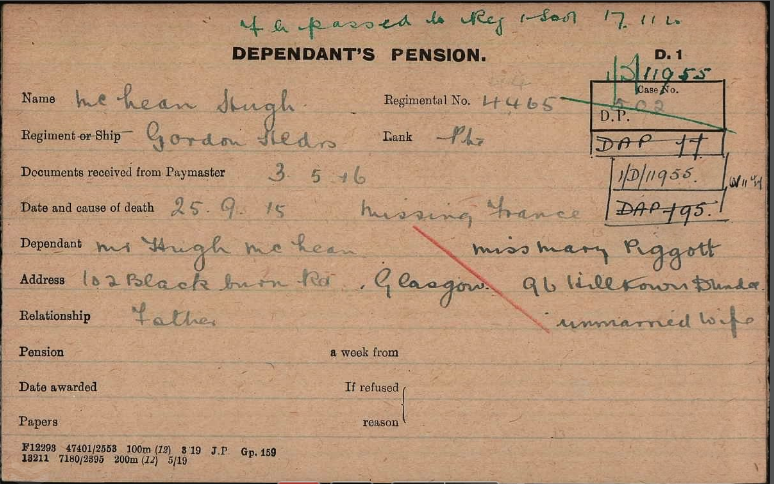 passed to Reg 17.11.20
DEPENDANT'S PENSION. D. 1
1/D/11955
Name McLean Hugh Regimental No. 4465 Case No.
D.P.
Regiment or Ship Gordon Hldrs Rank Pte DAP
Documents received from Paymaster 3 5 16 1/D/11955.
Date and cause of death 25. 9. 15 Missing France DAP 195.
Dependant Mr Hugh McLean Miss Mary Piggott
Address 102 Blackburn Rd. Glasgow. 96 Hilltown Dundee.
Relationship Father unmarried wife
Pension a week from
Date awarded If refused
Papers reason
F12293 47401/2553 100m (12) 3 19 J.P Gp. 159
13211 7180/2395 200m (12) 5/19